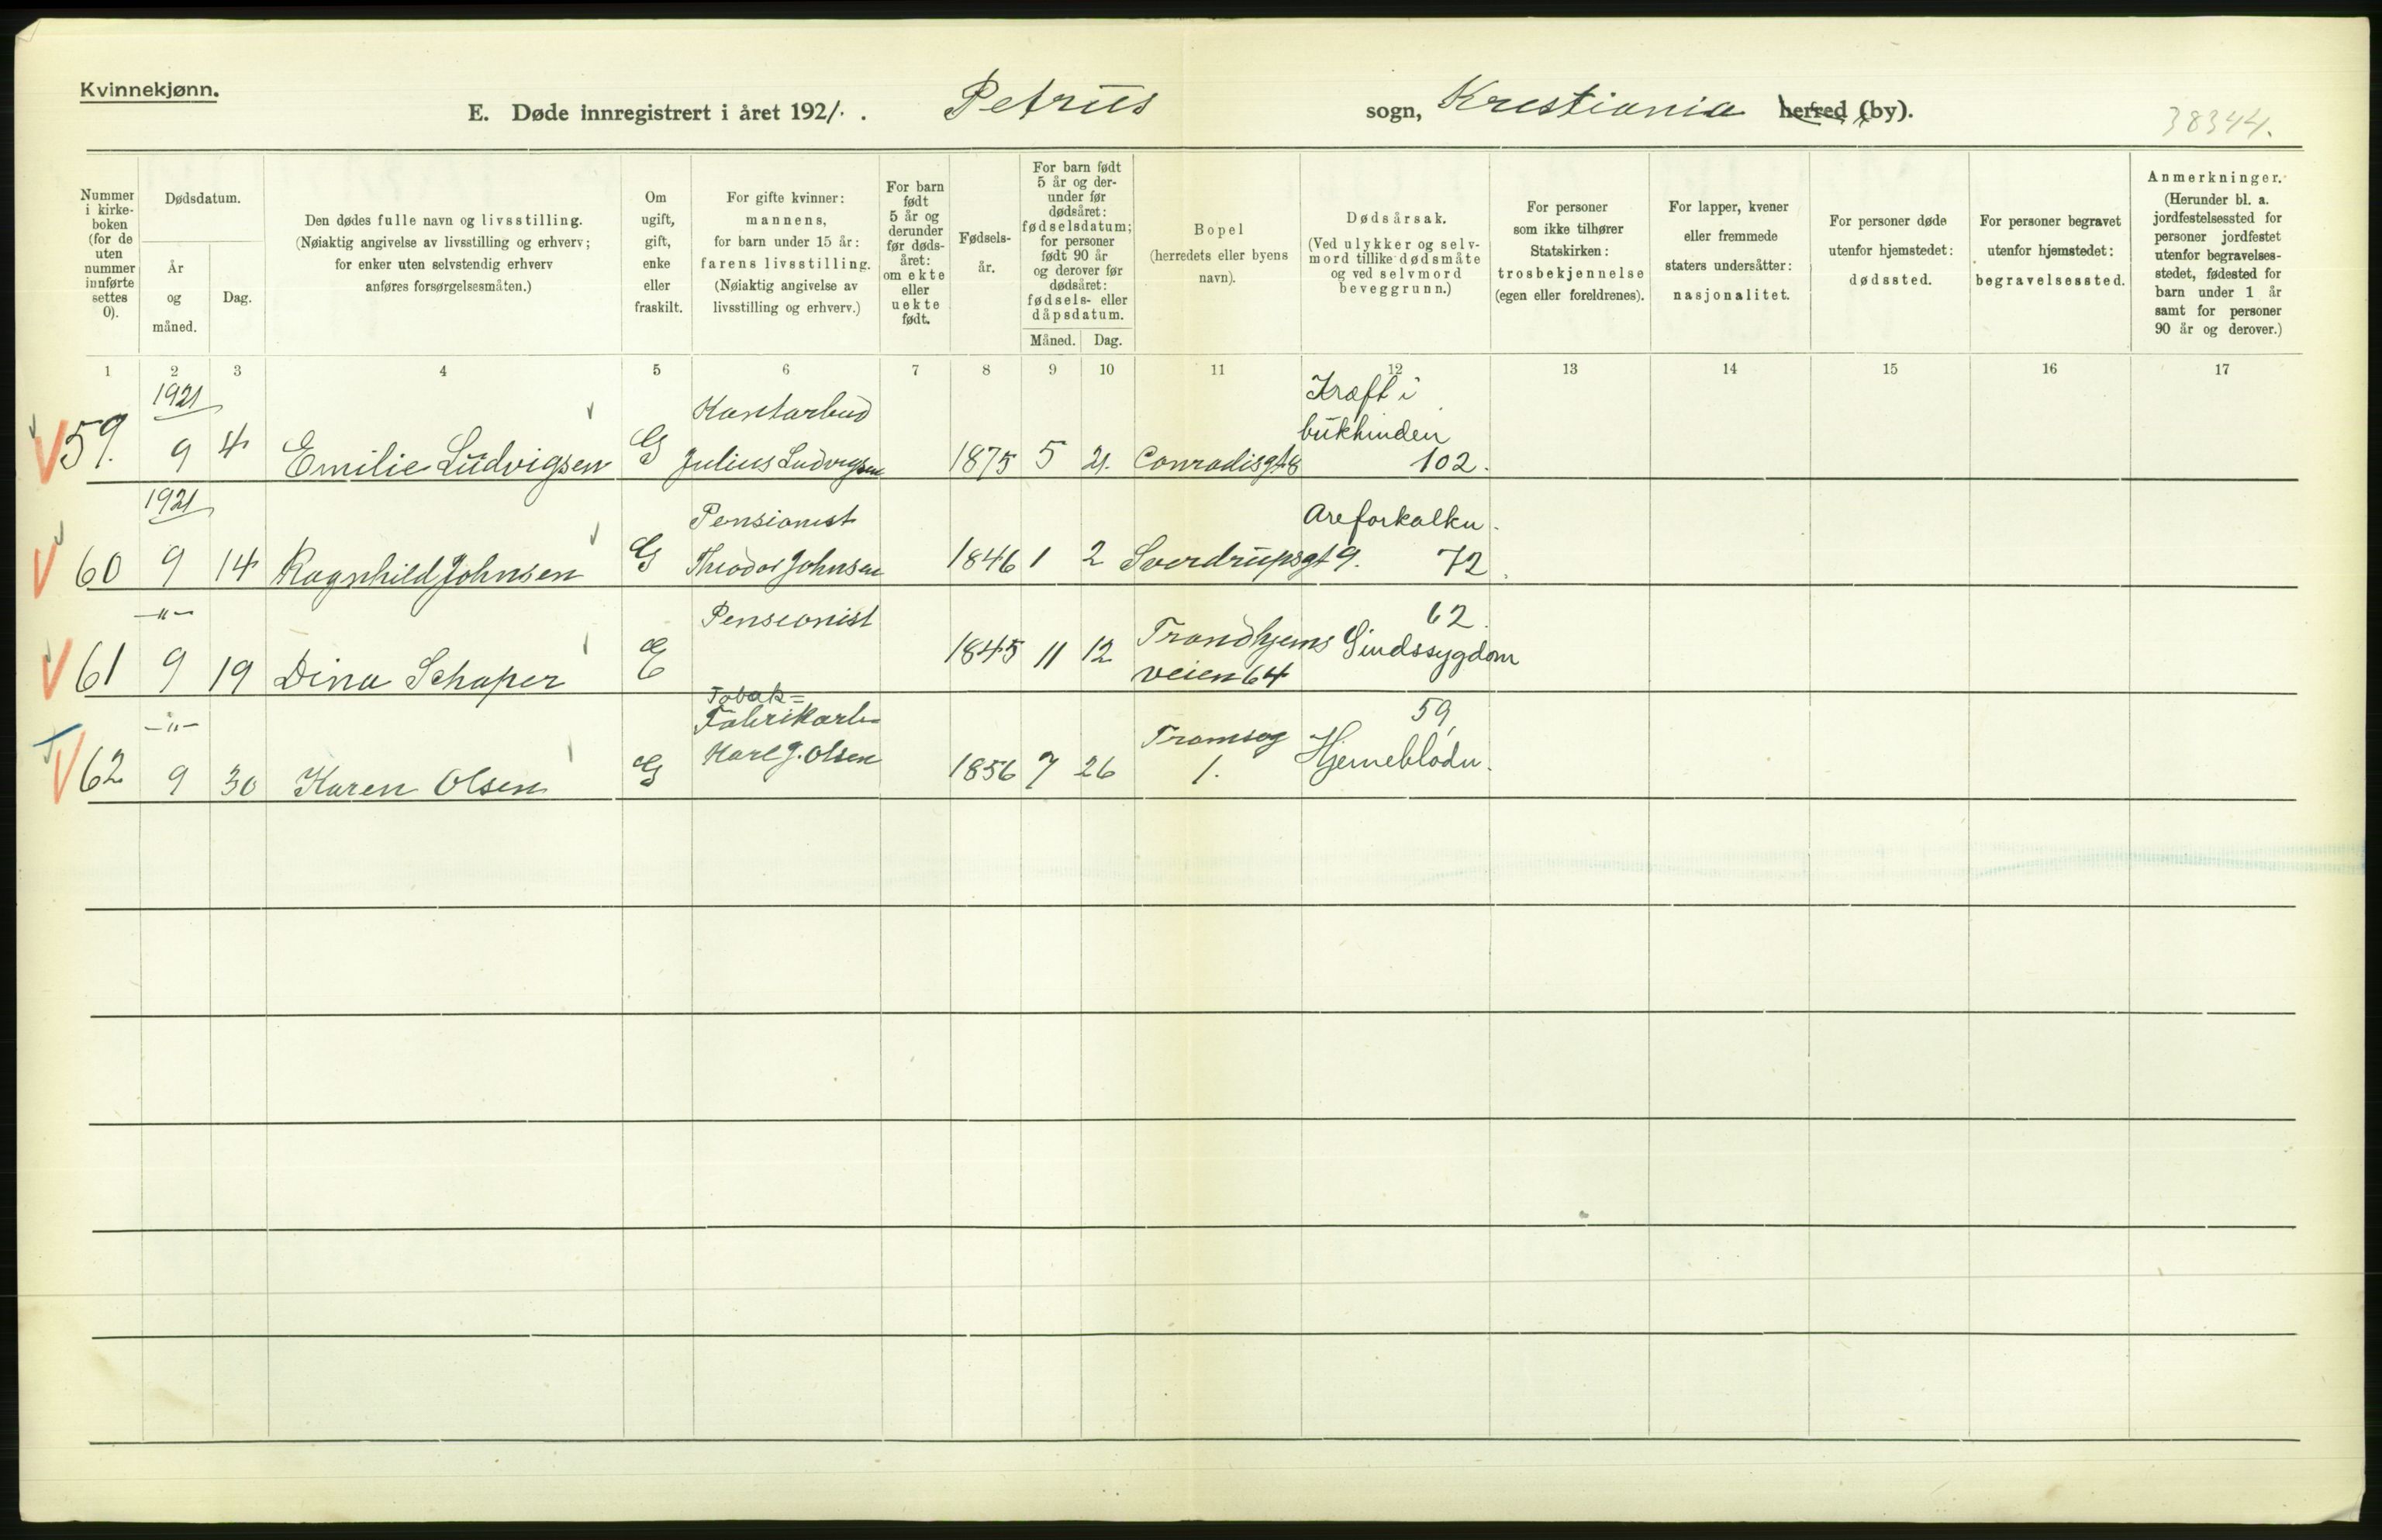 Kvinnekjønn.
E. Døde innregistrert i året 1921. Petrus sogn, Krestiania herred (by).
38344.
Nummer i kirke-boken (for de uten nummer innførte settes 0).
Dødsdatum.
År og måned.
Dag.
Den dødes fulle navn og livsstilling.
(Nøiaktig angivelse av livsstilling og erhverv;
for enker uten selvstendig erhverv
anføres forsørgelsesmåten.)
Om
ugift,
gift,
enke
eller
fraskilt.
For gifte kvinner:
mannens,
for barn under 15 år:
farens livsstilling.
(Nøiaktig angivelse av
livsstilling og erhverv.)
For barn
født
5 år og
derunder
før døds-
året:
om ekte
eller
uekte
født.
Fødsels-
år.
For barn født
5 år og der-
under før
dødsåret:
fødselsdatum;
for personer
født 90 år
og derover før
dødsåret:
fødsels- eller
dåpsdatum.
Måned. Dag.
Bopel
(herredets eller byens
navn).
Dødsårsak.
(Ved ulykker og selv-
mord tillike dødsmåte
og ved selvmord
beveggrunn.)
For personer
som ikke tilhører
Statskirken:
trosbekjennelse
(egen eller foreldrenes).
For lapper, kvener
eller fremmede
staters undersåtter:
nasjonalitet.
For personer døde
utenfor hjemstedet:
dødssted.
For personer begravet
utenfor hjemstedet:
begravelsessted.
Anmerkninger.
(Herunder bl. a.
jordfestelsessted for
personer jordfestet
utenfor begravelses-
stedet, fødested for
barn under 1 år
samt for personer
90 år og derover.)
1 2 3 4 5 6 7 8 9 10 11 12 13 14 15 16 17
1921 Kontorbud Kræft i
bukhinden
59. 9 4 Emilie Ludvigsen G Julius Ludvigsen 1875 5 21. Conradisgt 8 102.
1921 Pensionist Areforkalkn.
60 9 14 Ragnhild Johnsen G Theodor Johnsen 1846 1 2 Sverdrupsgt 9. 72.
—"— Pensionist 62.
61 9 19 Dina Schaper E 1845 11 12 Trondhjems Sindssygdom
veien 64
—"— Tobak=
Fabrikarb. 59,
62 9 30 Karen Olsen G Karl J. Olsen 1856 7 26 Tromsøg Hjerneblødn.
1.